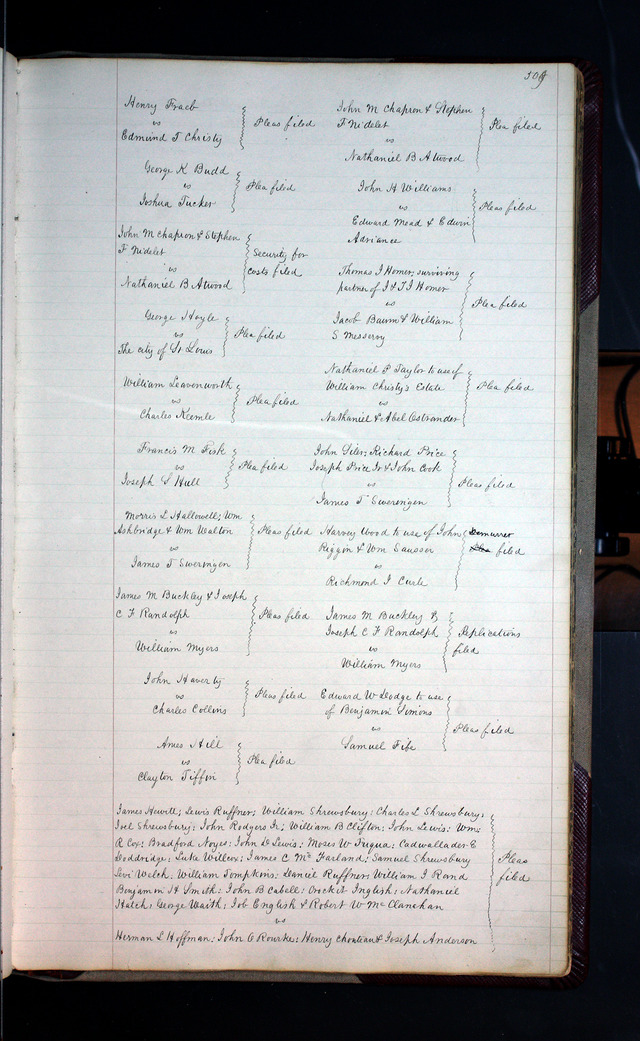 309
Henry Fraeb
vs
Edmund T Christy
Pleas filed
George K Budd
vs
Joshua Tucker
Plea filed
John M Chapron & Stephen
F Nidelet
vs
Nathaniel B Atwood
Security for
costs filed
George Hoyle
vs
The city of St Louis
Plea filed
William Leavenworth
vs
Charles Keemle
Plea filed
Francis M Fisk
vs
Joseph S Hull
Plea filed
Morris L Hallowell; Wm
Ashbridge & Wm Walton
vs
James T Swerengen
Pleas filed
James M Buckley & Joseph
C F Randolph
vs
William Myers
Pleas filed
John Haverty
vs
Charles Collins
Pleas filed
Ames Hill
vs
Clayton Tiffin
Plea filed
John M Chapron & Stephen
F Nidelet
vs
Nathaniel B Atwood
Plea filed
John H Williams
vs
Edward Mead & Edwin
Adriance
Pleas filed
Thomas J Homer; surviving
partner of J & T J Homer
vs
Jacob Baum & William
S Messervy
Plea filed
Nathaniel P Taylor to use of
William Christy's Estate
vs
Nathaniel & Abel Ostrander
Plea filed
John Siler; Richard Price
Joseph Price Jr & John Cook
vs
James T Swerengen
Pleas filed
Harvey Wood to use of John
Riggin & Wm Sausser
vs
Richmond J Curle
Demurrer
Plea filed
James M Buckley &
Joseph C F Randolph
vs
William Myers
Replications
filed
Edward W Dodge to use
of Benjamin Simons
vs
Samuel Fife
Pleas filed
James Hewitt; Lewis Ruffner; William Shrewsbury; Charles L Shrewsbury;
Joel Shrewsbury; John Rodgers Jr; William B Clifton; John Lewis; Wm
R Cox; Bradford Noyes; John D Lewis; Moses W Fuqua; Cadwallader E
Doddridge; Luke Willcox; James C Mc Farland; Samuel Shrewsbury
Levi Welch; William Tompkins; Daniel Ruffner; William J Rand
Benjamin H Smith; John B Cabell; Crocket Inglish; Nathaniel
Hatch; George Waith; Job English & Robert W Mc Clanahan
vs
Herman L Hoffman; John O Rourke; Henry Chouteau & Joseph Anderson
Pleas
filed